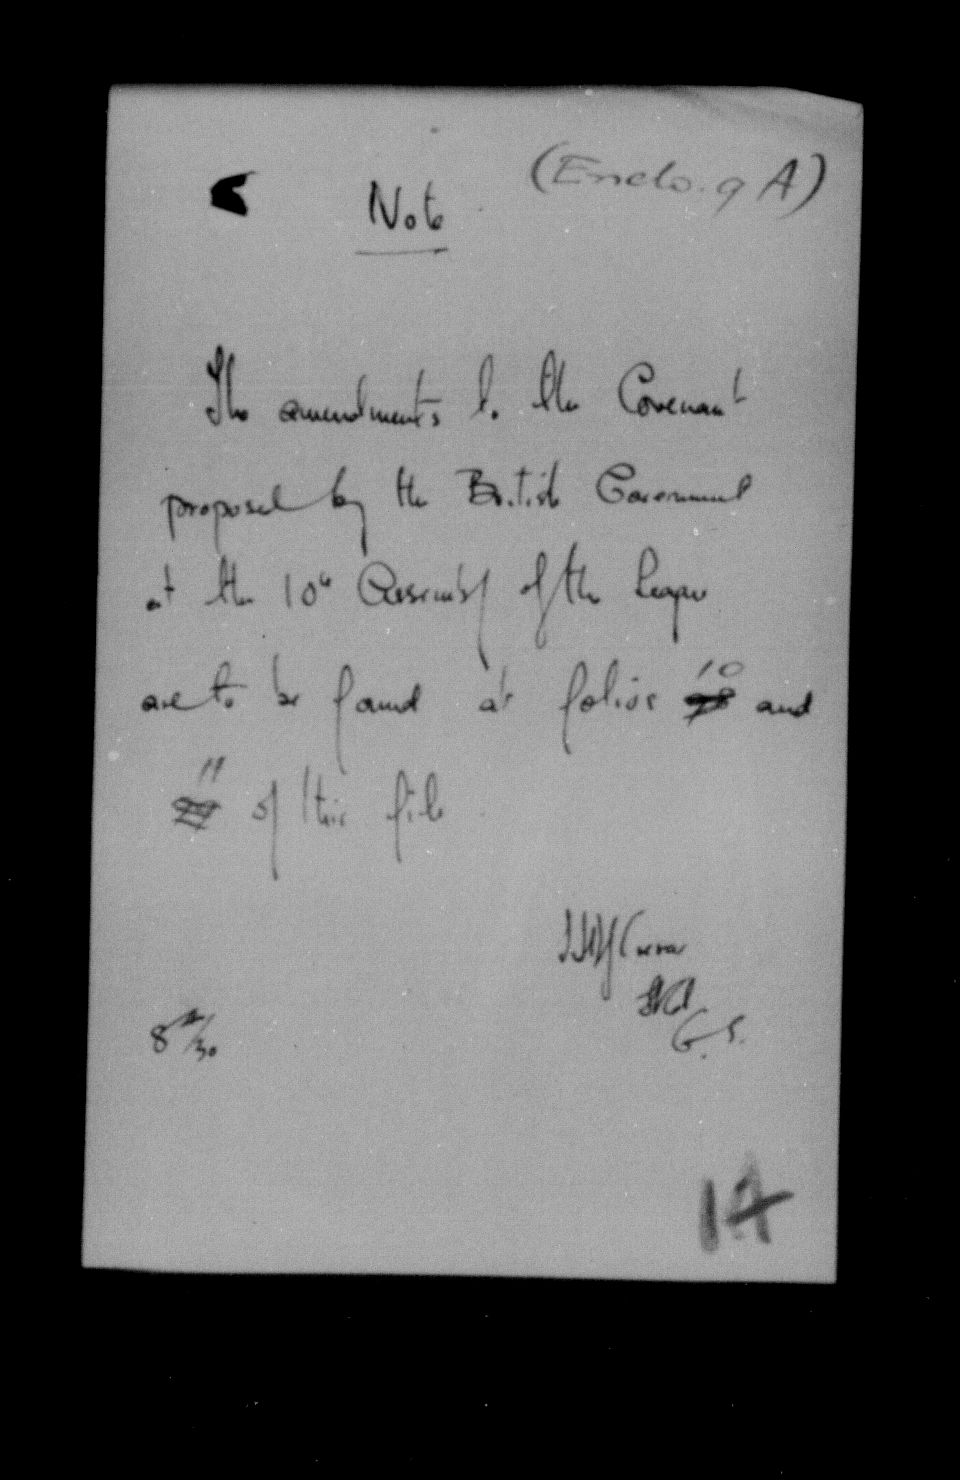 (Enclo. 9 A)
Note
The amendments to the Covenant
proposed by the British Government
at the 10th Assembly of the League
are to be found at folios 10 and
11 of this file.
G. S.
1A